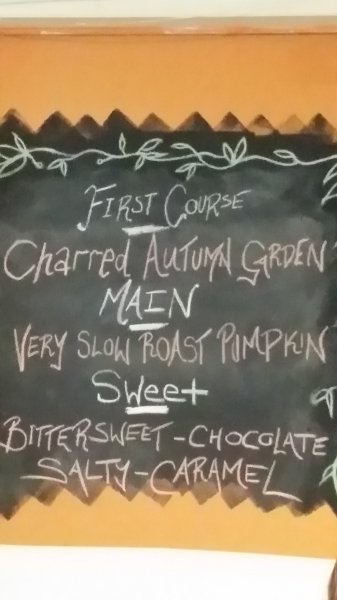 FIRST COURSE
Charred AUTUMN GRDEN
MAIN
VERY SLOW ROAST PUMPKIN
Sweet
BITTERSWEET-CHOCOLATE
SALTY-CARAMEL